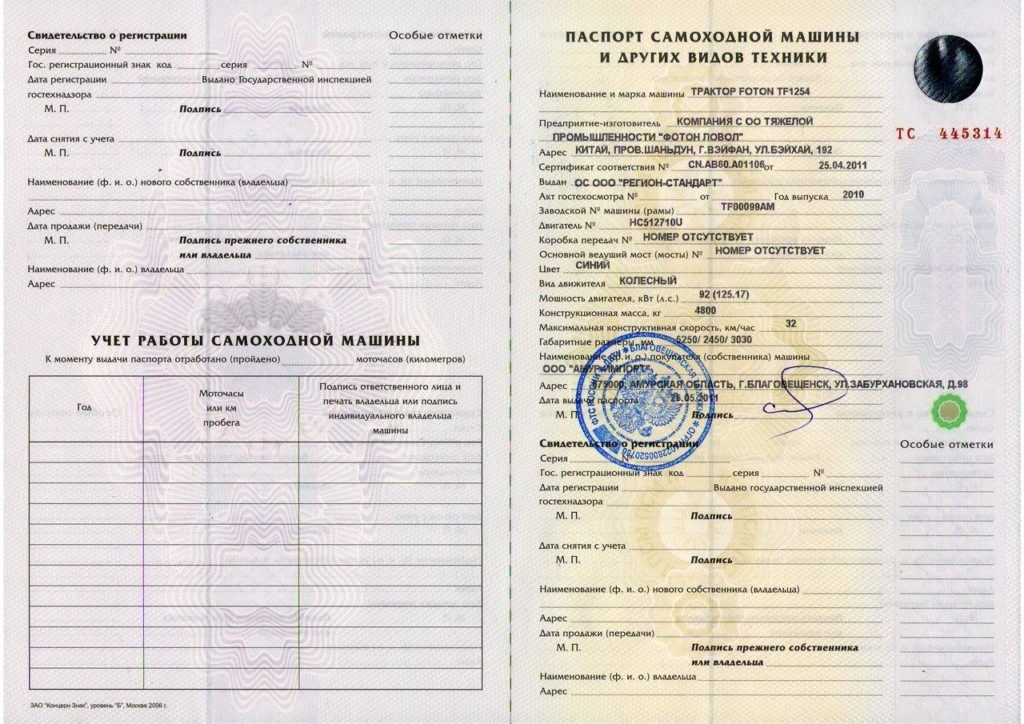 Свидетельство о регистрации
Особые отметки
Серия № 
Гос. регистрационный знак код серия №
Дата регистрации Выдано Государственной инспекцией
гостехнадзора
М. П. Подпись
Дата снятия с учета
М. П. Подпись
Наименование (ф. и. о.) нового собственника (владельца)
Адрес
Дата продажи (передачи)
М. П. Подпись прежнего собственника
или владельца
Наименование (ф. и. о.) владельца
Адрес
УЧЕТ РАБОТЫ САМОХОДНОЙ МАШИНЫ
К моменту выдачи паспорта отработано (пройдено) моточасов (километров)
Год
Моточасы
или км
пробега
Подпись ответственного лица и
печать владельца или подпись
индивидуального владельца
машины
ЗАО "Концерн Знак", уровень "Б", Москва 2006 г.
ПАСПОРТ САМОХОДНОЙ МАШИНЫ
И ДРУГИХ ВИДОВ ТЕХНИКИ
ТС 445314
Наименование и марка машины ТРАКТОР FOTON TF1254
Предприятие-изготовитель КОМПАНИЯ С ОО ТЯЖЕЛОЙ
ПРОМЫШЛЕННОСТИ "ФОТОН ЛОВОЛ"
Адрес КИТАЙ, ПРОВ.ШАНЬДУН, Г.ВЭЙФАН, УЛ.БЭЙХАЙ, 192
Сертификат соответствия № CN.АВ60.А01106 от 25.04.2011
Выдан ОС ООО "РЕГИОН-СТАНДАРТ"
Акт гостехосмотра № от Год выпуска 2010
Заводской № машины (рамы) TF00099AM
Двигатель № HC512710U
Коробка передач № НОМЕР ОТСУТСТВУЕТ
Основной ведущий мост (мосты) № НОМЕР ОТСУТСТВУЕТ
Цвет СИНИЙ
Вид движителя КОЛЕСНЫЙ
Мощность двигателя, кВт (л.с.) 92 (125.17)
Конструкционная масса, кг 4800
Максимальная конструктивная скорость, км/час 32
Габаритные размеры, мм 5250/ 2450/ 3030
Наименование (ф. и. о.) покупателя (собственника) машины
ООО "АМУР-ИМПОРТ"
Адрес 675000, АМУРСКАЯ ОБЛАСТЬ, Г.БЛАГОВЕЩЕНСК, УЛ.ЗАБУРХАНОВСКАЯ, Д.98
Дата выдачи паспорта 26.05.2011
М. П. Подпись
Свидетельство о регистрации
Особые отметки
Серия №
Гос. регистрационный знак код серия №
Дата регистрации Выдано государственной инспекцией
гостехнадзора
М. П. Подпись
Дата снятия с учета
М. П. Подпись
Наименование (ф. и. о.) нового собственника (владельца)
Адрес
Дата продажи (передачи)
М. П. Подпись прежнего собственника
или владельца
Наименование (ф. и. о.) владельца
Адрес